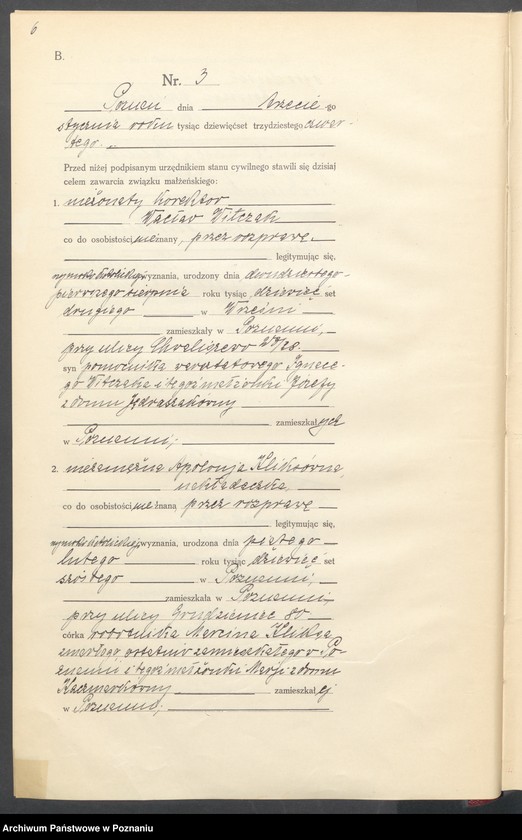 6
B.
Nr. 3
Poznań dnia trzecie-go
stycznia roku tysiąc dziewięćset trzydziestego czwar-
tego.
Przed niżej podpisanym urzędnikiem stanu cywilnego stawili się dzisiaj
celem zawarcia związku małżeńskiego:
1. nieżonaty korektor
Wacław Witczak
co do osobistości nieznany, przez rozprawę
legitymując się,
rzymsko katolickiego wyznania, urodzony dnia dwudziestego-
pierwszego sierpnia roku tysiąc dziewięć set
drugiego w Wrześni
zamieszkały w Poznaniu,
przy ulicy
syn pomocnika Ignace-
go Witczaka i tegoż małżonki Józefy
z domu Jędraszakówny
zamieszkałych
w Poznaniu,
2. niezamężna Apolonja Klikówna,
nakładaczka,
co do osobistości nieznaną przez rozprawę
legitymując się,
rzymsko katolickiego wyznania, urodzona dnia piątego
lutego roku tysiąc dziewięć set
szóstego w Poznaniu,
zamieszkała w Poznaniu
przy ulicy Grudzieniec 80
córka robotnika Marcina Klika,
zmarłego ostatnio zamieszkałego w Po-
znaniu i tegoż małżonki Marji z domu
Kaczmarkówny zamieszkałej
w Poznaniu,
Archiwum Państwowe w Poznaniu